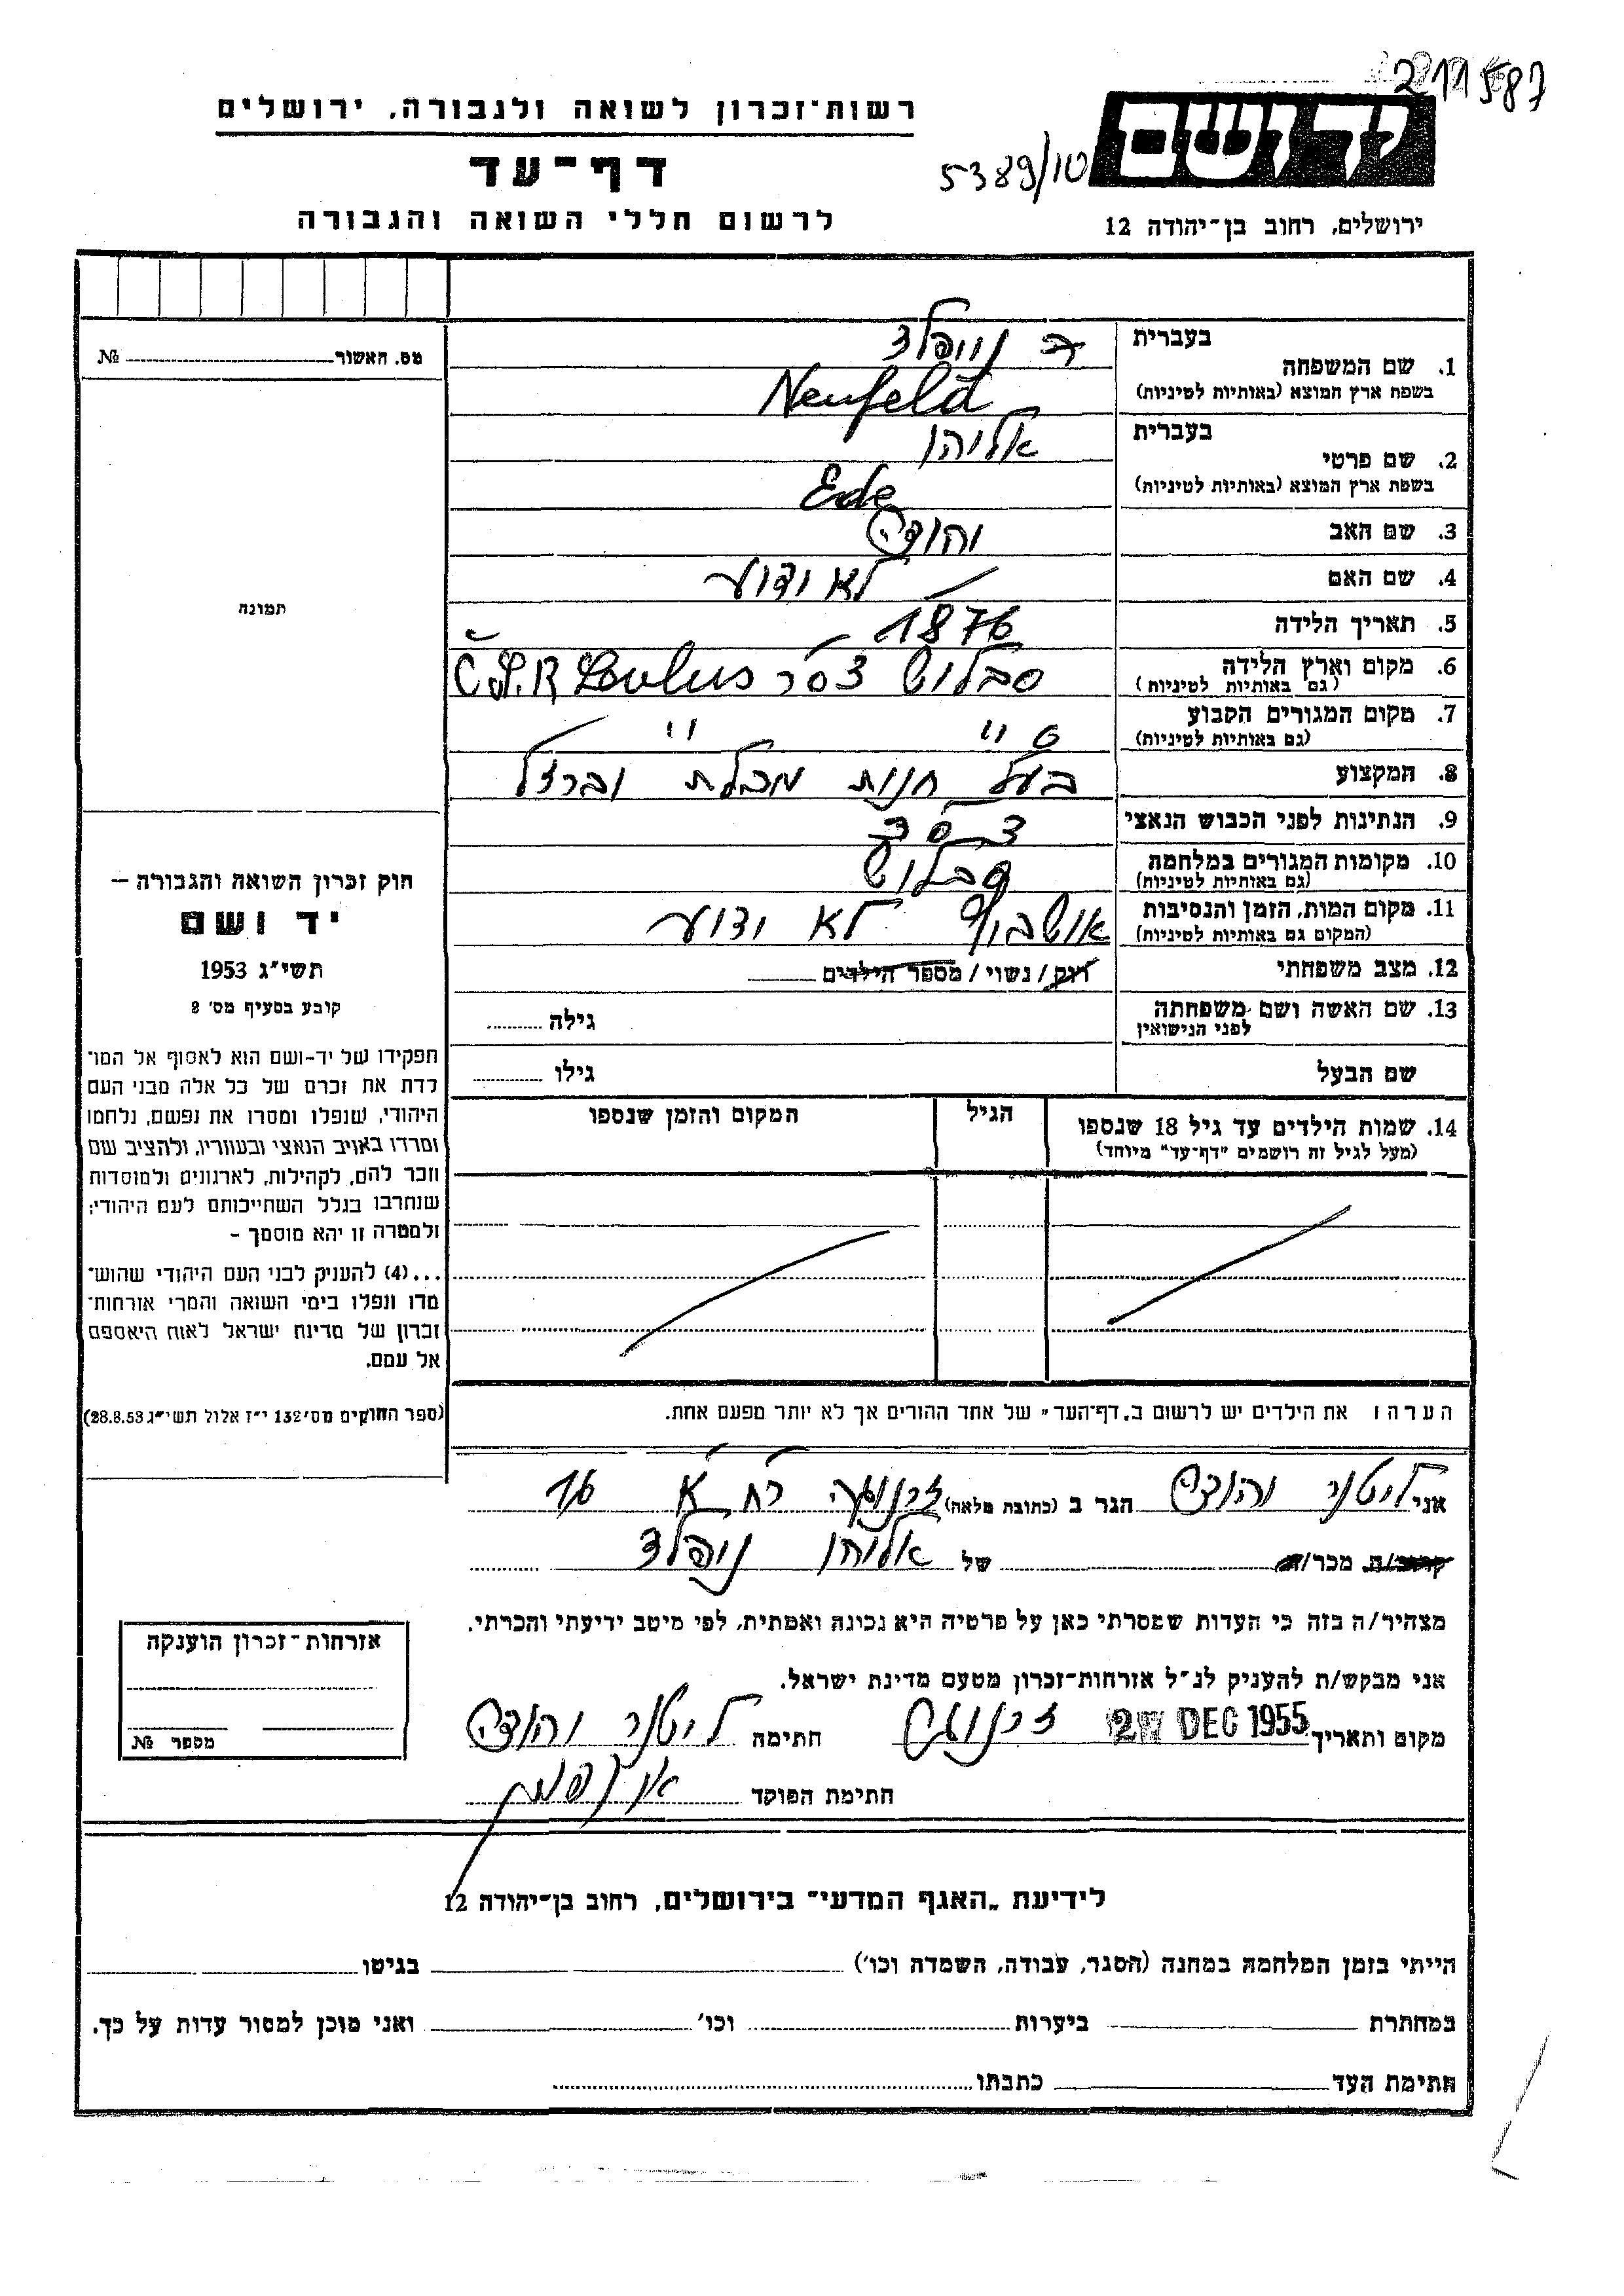 211587
רשות־זכרון לשואה ולגבורה, ירושלים
דף־עד
לרשום חללי השואה והגבורה
5389/10
ידושם
ירושלים, רחוב בן־יהודה 12
מס. האשור № 
תמונה
1. שם המשפחה
בעברית נייפלד
בשפת ארץ המוצא (באותיות לטיניות) Neufeld
2. שם פרטי
בעברית אליהו
בשפת ארץ המוצא (באותיות לטיניות) Ede
3. שם האב יהודה
4. שם האם לא ידוע
5. תאריך הלידה 1876
6. מקום וארץ הלידה סבלוש צ'ס'ר Č.S.R
(גם באותיות לטיניות)
7. מקום המגורים הקבוע " "
(גם באותיות לטיניות)
8. המקצוע בעל חנות מכלת וברזל
9. הנתינות לפני הכבוש הנאצי
10. מקומות המגורים במלחמה סבלוש
(גם באותיות לטיניות)
11. מקום המות, הזמן והנסיבות אושביץ לא ידוע
(המקום גם באותיות לטיניות)
12. מצב משפחתי רוק / נשוי / מספר הילדים
13. שם האשה ושם משפחתה
לפני הנישואין
גילה
שם הבעל
גילו
14. שמות הילדים עד גיל 18 שנספו
(מעל לגיל זה רושמים "דף־עד" מיוחד)
הגיל
המקום והזמן שנספו
חוק זכרון השואה והגבורה –
יד ושם
תשי"ג 1953
קובע בסעיף מס' 2
תפקידו של יד-ושם הוא לאסוף אל המו־
לדת את זכרם של כל אלה מבני העם
היהודי, שנפלו ומסרו את נפשם, נלחמו
ומרדו באויב הנאצי ובעוזריו, ולהציב שם
וזכר להם, לקהילות, לארגונים ולמוסדות
שנחרבו בגלל השתייכותם לעם היהודי;
ולמטרה זו יהא מוסמך –
...(4) להעניק לבני העם היהודי שהוש־
מדו ונפלו בימי השואה והמרי אזרחות־
זכרון של מדינת ישראל לאות היאספם
אל עמם.
(ספר החוקים מס' 132 י"ז אלול תשי"ג 28.8.53)
הערה: את הילדים יש לרשום ב„דף־העד" של אחד ההורים אך לא יותר מפעם אחת.
אני ליטנר יהודה הגר ב (כתובת מלאה) זרנוגה ר'ח' א' 16
קרוב/ת מכר/ה של אליהו נויפלד
מצהיר/ה בזה כי העדות שמסרתי כאן על פרטיה היא נכונה ואמתית, לפי מיטב ידיעתי והכרתי.
אני מבקש/ת להעניק לנ"ל אזרחות־זכרון מטעם מדינת ישראל.
מקום ותאריך 27 DEC 1955 זרנוגה חתימה ליטנר יהודה
חתימת הפוקד
אזרחות־זכרון הוענקה
מספר №
לידיעת „האגף המדעי" בירושלים, רחוב בן־יהודה 12
הייתי בזמן המלחמה במחנה (הסגר, עבודה, השמדה וכו') בגיטו
במחתרת ביערות וכו' ואני מוכן למסור עדות על כך.
חתימת העד כתבתו